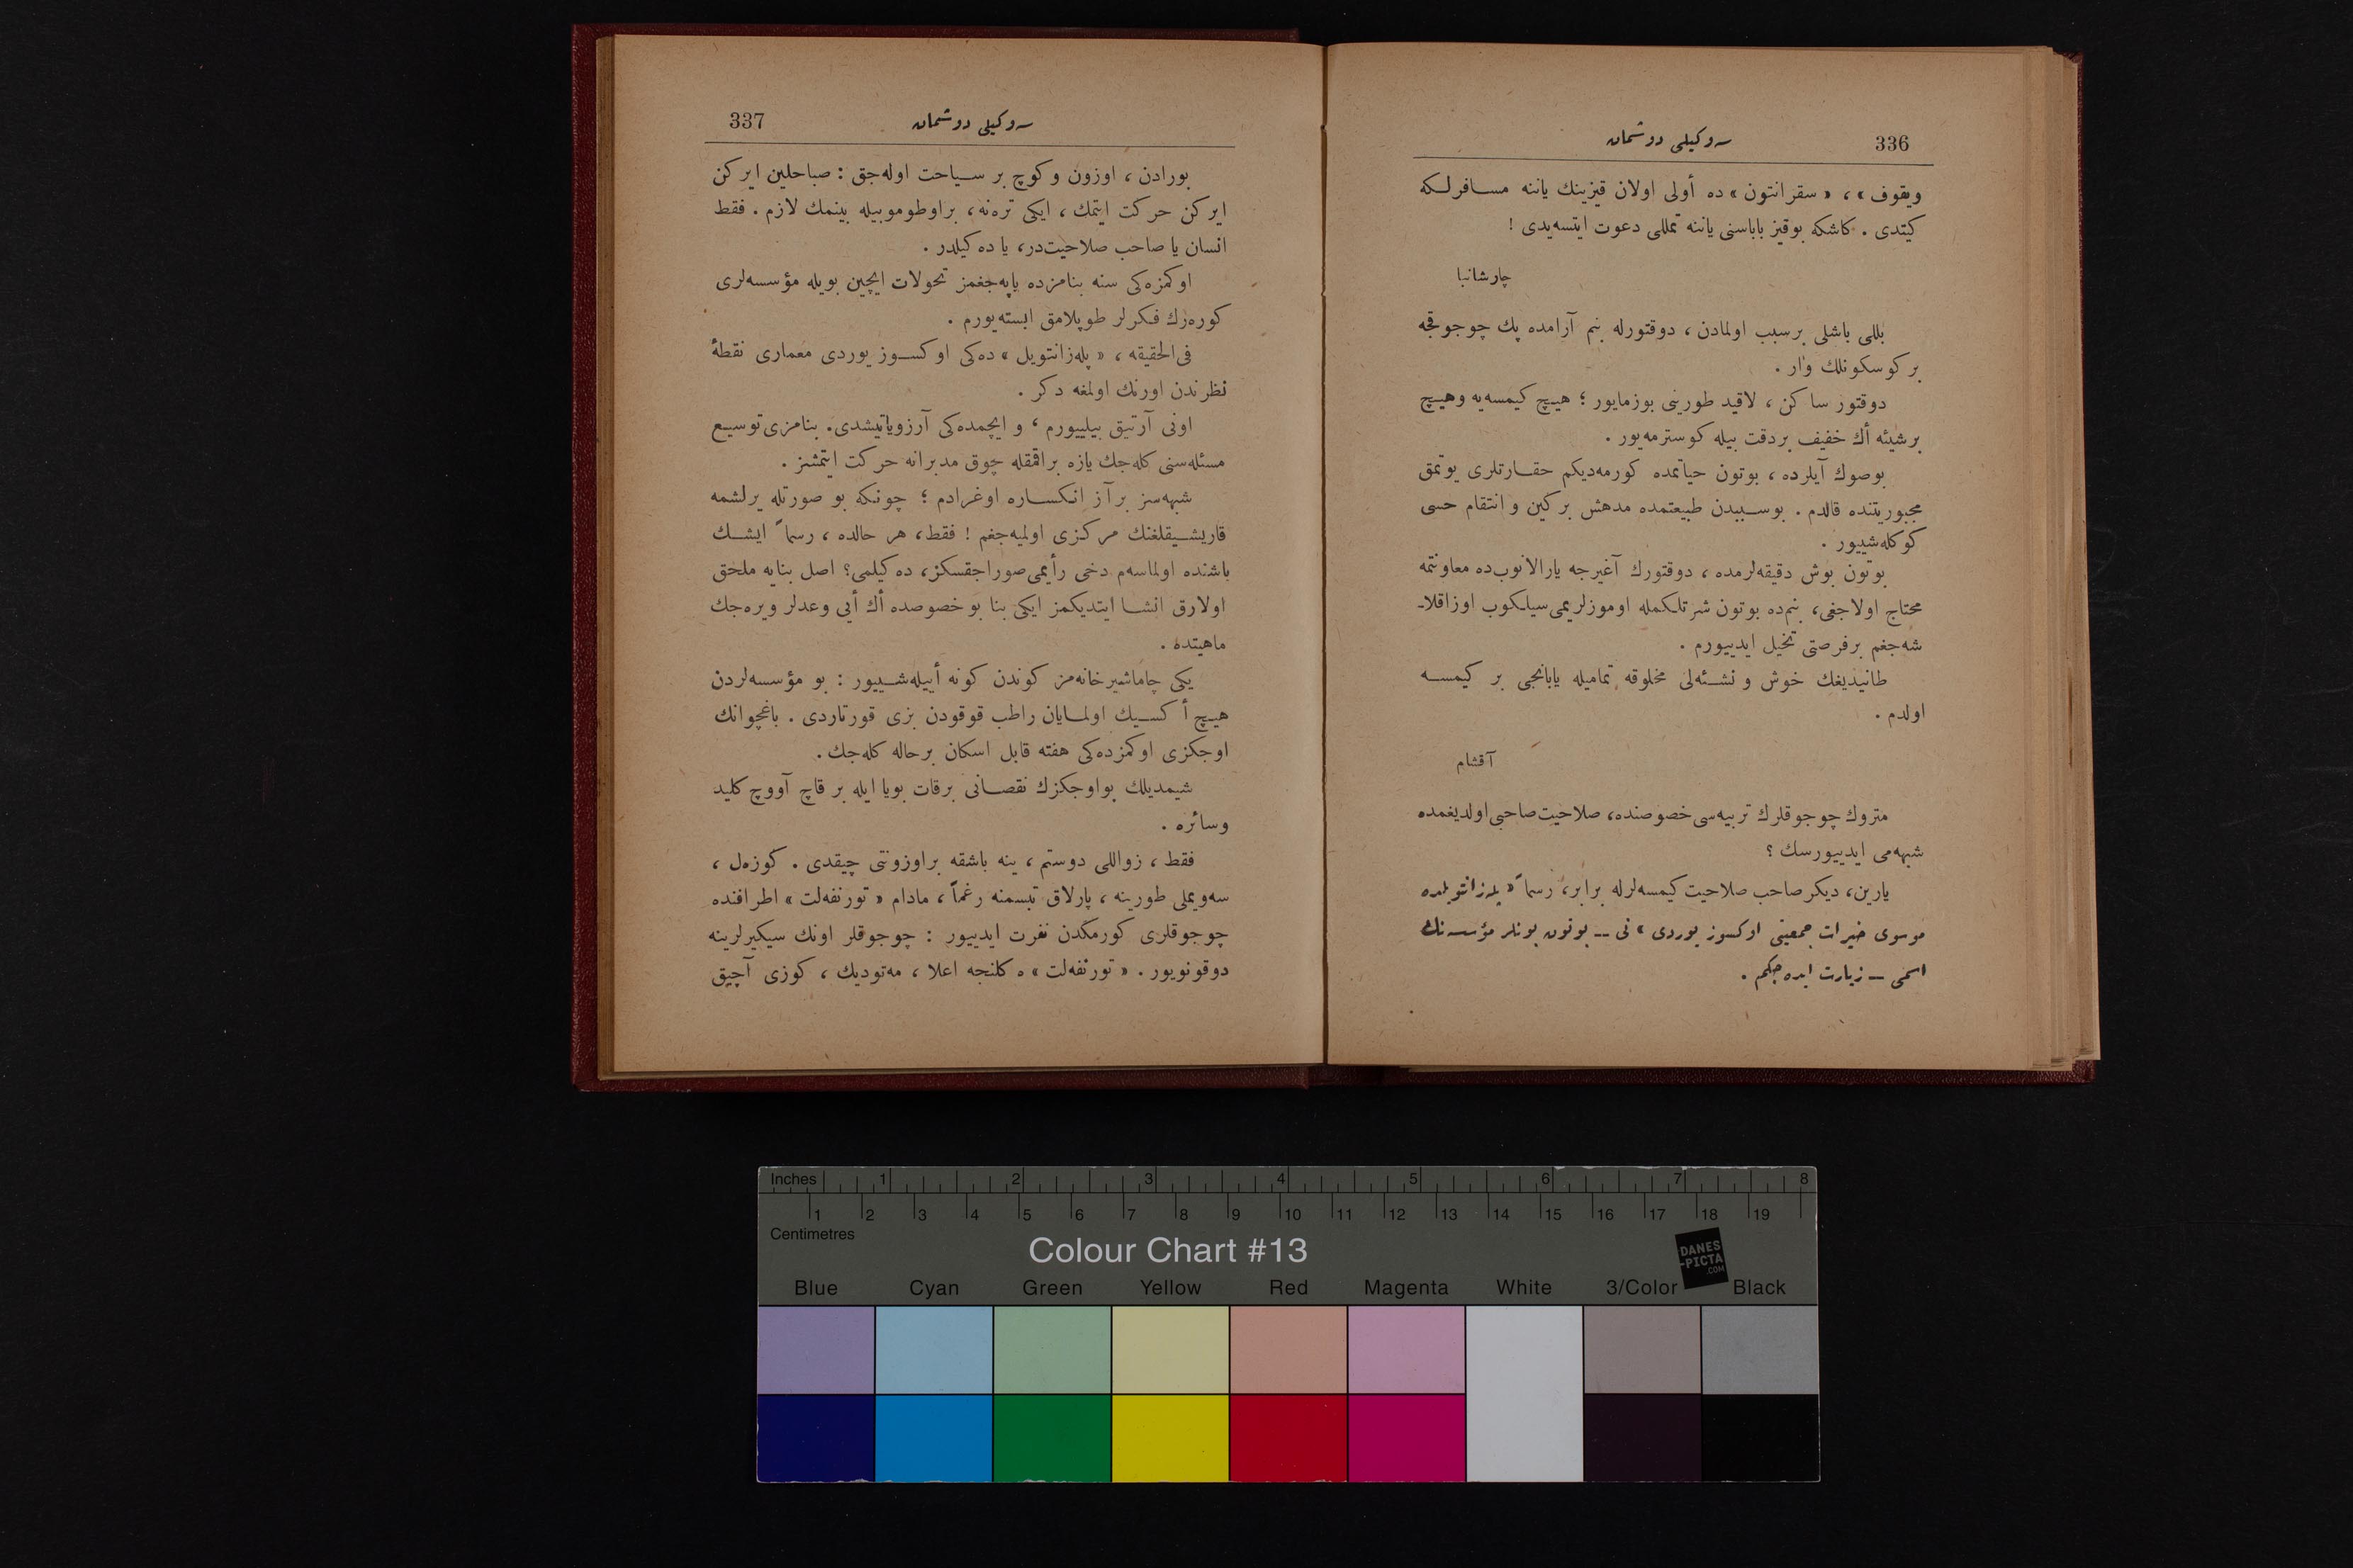 336
سه‌وكيلی دوشمان
ويقوف» ، « سقرانتون » ده أولی اولان قيزينك ياننه مسافرلكه
كيتدی . كاشكه بوقيز باباسنی ياننه تمللی دعوت ايتسه‌يدی !
چارشانبا
بللی باشلی برسبب اولمادن ، دوقتورله بنم آرامده پك چوجوقجه
بر كوسكونلك وار .
دوقتور ساكن ، لاقيد طورينی بوزمايور ؛ هيچ كيمسه‌يه وهيچ
برشيئه أك خفيف بردقت بيله كوسترمه‌يور .
بوصوك آيلرده ، بوتون حياتمده كورمه‌ديكم حقارتلری يوتمق
مجبوريتنده قالدم . بوسببدن طبيعتمده مدهش بركين و انتقام حسی
كوكله‌شييور .
بوتون بوش دقيقه‌لرمده ، دوقتورك آغيرجه يارالانوب‌ده معاونتمه
محتاج اولاجغی، بنم‌ده بوتون شرتلكمله اوموزلريمی سيلكوب اوزاقلا-
شه‌جغم برفرصتی تخيل ايدييورم .
طانيديغك خوش و نشئه‌لی مخلوقه تماميله يابانجی بر كيمسه
اولدم .
آقشام
متروك چوجوقلرك تربيه‌سی خصوصنده، صلاحيت صاحبی اولديغمده
شبهه‌می ايدييورسك ؟
يارين، ديكر صاحب صلاحيت كيمسه‌لرله برابر، رسماً « پله‌زانتويلده
موسوی خيرات جمعيتی اوكسوز يوردی » نی — بوتون بونلر مؤسسه‌نك
اسمی — زيارت ايده‌جكم .
337
سه‌وكيلی دوشمان
بورادن ، اوزون و كوچ بر سياحت اوله‌جق : صباحلين ايركن
ايركن حركت ايتمك ، ايكی تره‌نه، براوطوموبيله بينمك لازم . فقط
انسان يا صاحب صلاحيت‌در، يا ده كيلدر .
اوكمزده‌كی سنه بنامزده ياپه‌جغمز تحولات ايچين بويله مؤسسه‌لری
كوره‌رك فكرلر طوپلامق ايسته‌يورم .
فی‌الحقيقه ، « پله‌زانتويل » ده‌كی اوكسوز يوردی معماری نقطهٔ
نظرندن اورنك اولمغه دكر .
اونی آرتيق بيلييورم ، و ايچمده‌كی آرزوياتيشدی. بنامزی توسيع
مسئله‌سنی كله‌جك يازه براقمقله چوق مدبرانه حركت ايتمشز .
شبهه‌سز برآز انكساره اوغرادم ؛ چونكه بو صورتله يرلشمه
قاريشيقلغنك مركزی اولميه‌جغم ! فقط، هر حالده ، رسماً ايشك
باشنده اولماسه‌م دخی رأيمی صوراجقسكز، ده‌كيلمی؟ اصل بنايه ملحق
اولارق انشا ايتديكمز ايكی بنا بو خصوصده أك أيی وعدلر ويره‌جك
ماهيتده .
يكی چاماشيرخانه‌مز كوندن كونه أييله‌شييور : بو مؤسسه‌لردن
هيچ أكسيك اولمايان راطب قوقودن بزی قورتاردی . باغچوانك
اوجكزی اوكمزده‌كی هفته قابل اسكان برحاله كله‌جك .
شيمديلك بواوجكزك نقصانی برقات بويا ايله بر قاچ آووچ كليد
وسائره .
فقط ، زواللی دوستم ، ينه باشقه براوزونتی چيقدی . كوزه‌ل ،
سه‌ويملی طورينه ، پارلاق تبسمنه رغماً ، مادام « تورنفه‌لت » اطرافنده
چوجوقلری كورمكدن نفرت ايدييور : چوجوقلر اونك سيكيرلرينه
دوقونويور . « تورنفه‌لت » ه كلنجه اعلا ، مه‌توديك ، كوزی آچيق
Inches 1 2 3 4 5 6 7 8
1 2 3 4 5 6 7 8 9 10 11 12 13 14 15 16 17 18 19
Centimetres
Colour Chart #13
DANES
-PICTA
.COM
Blue Cyan Green Yellow Red Magenta White 3/Color Black